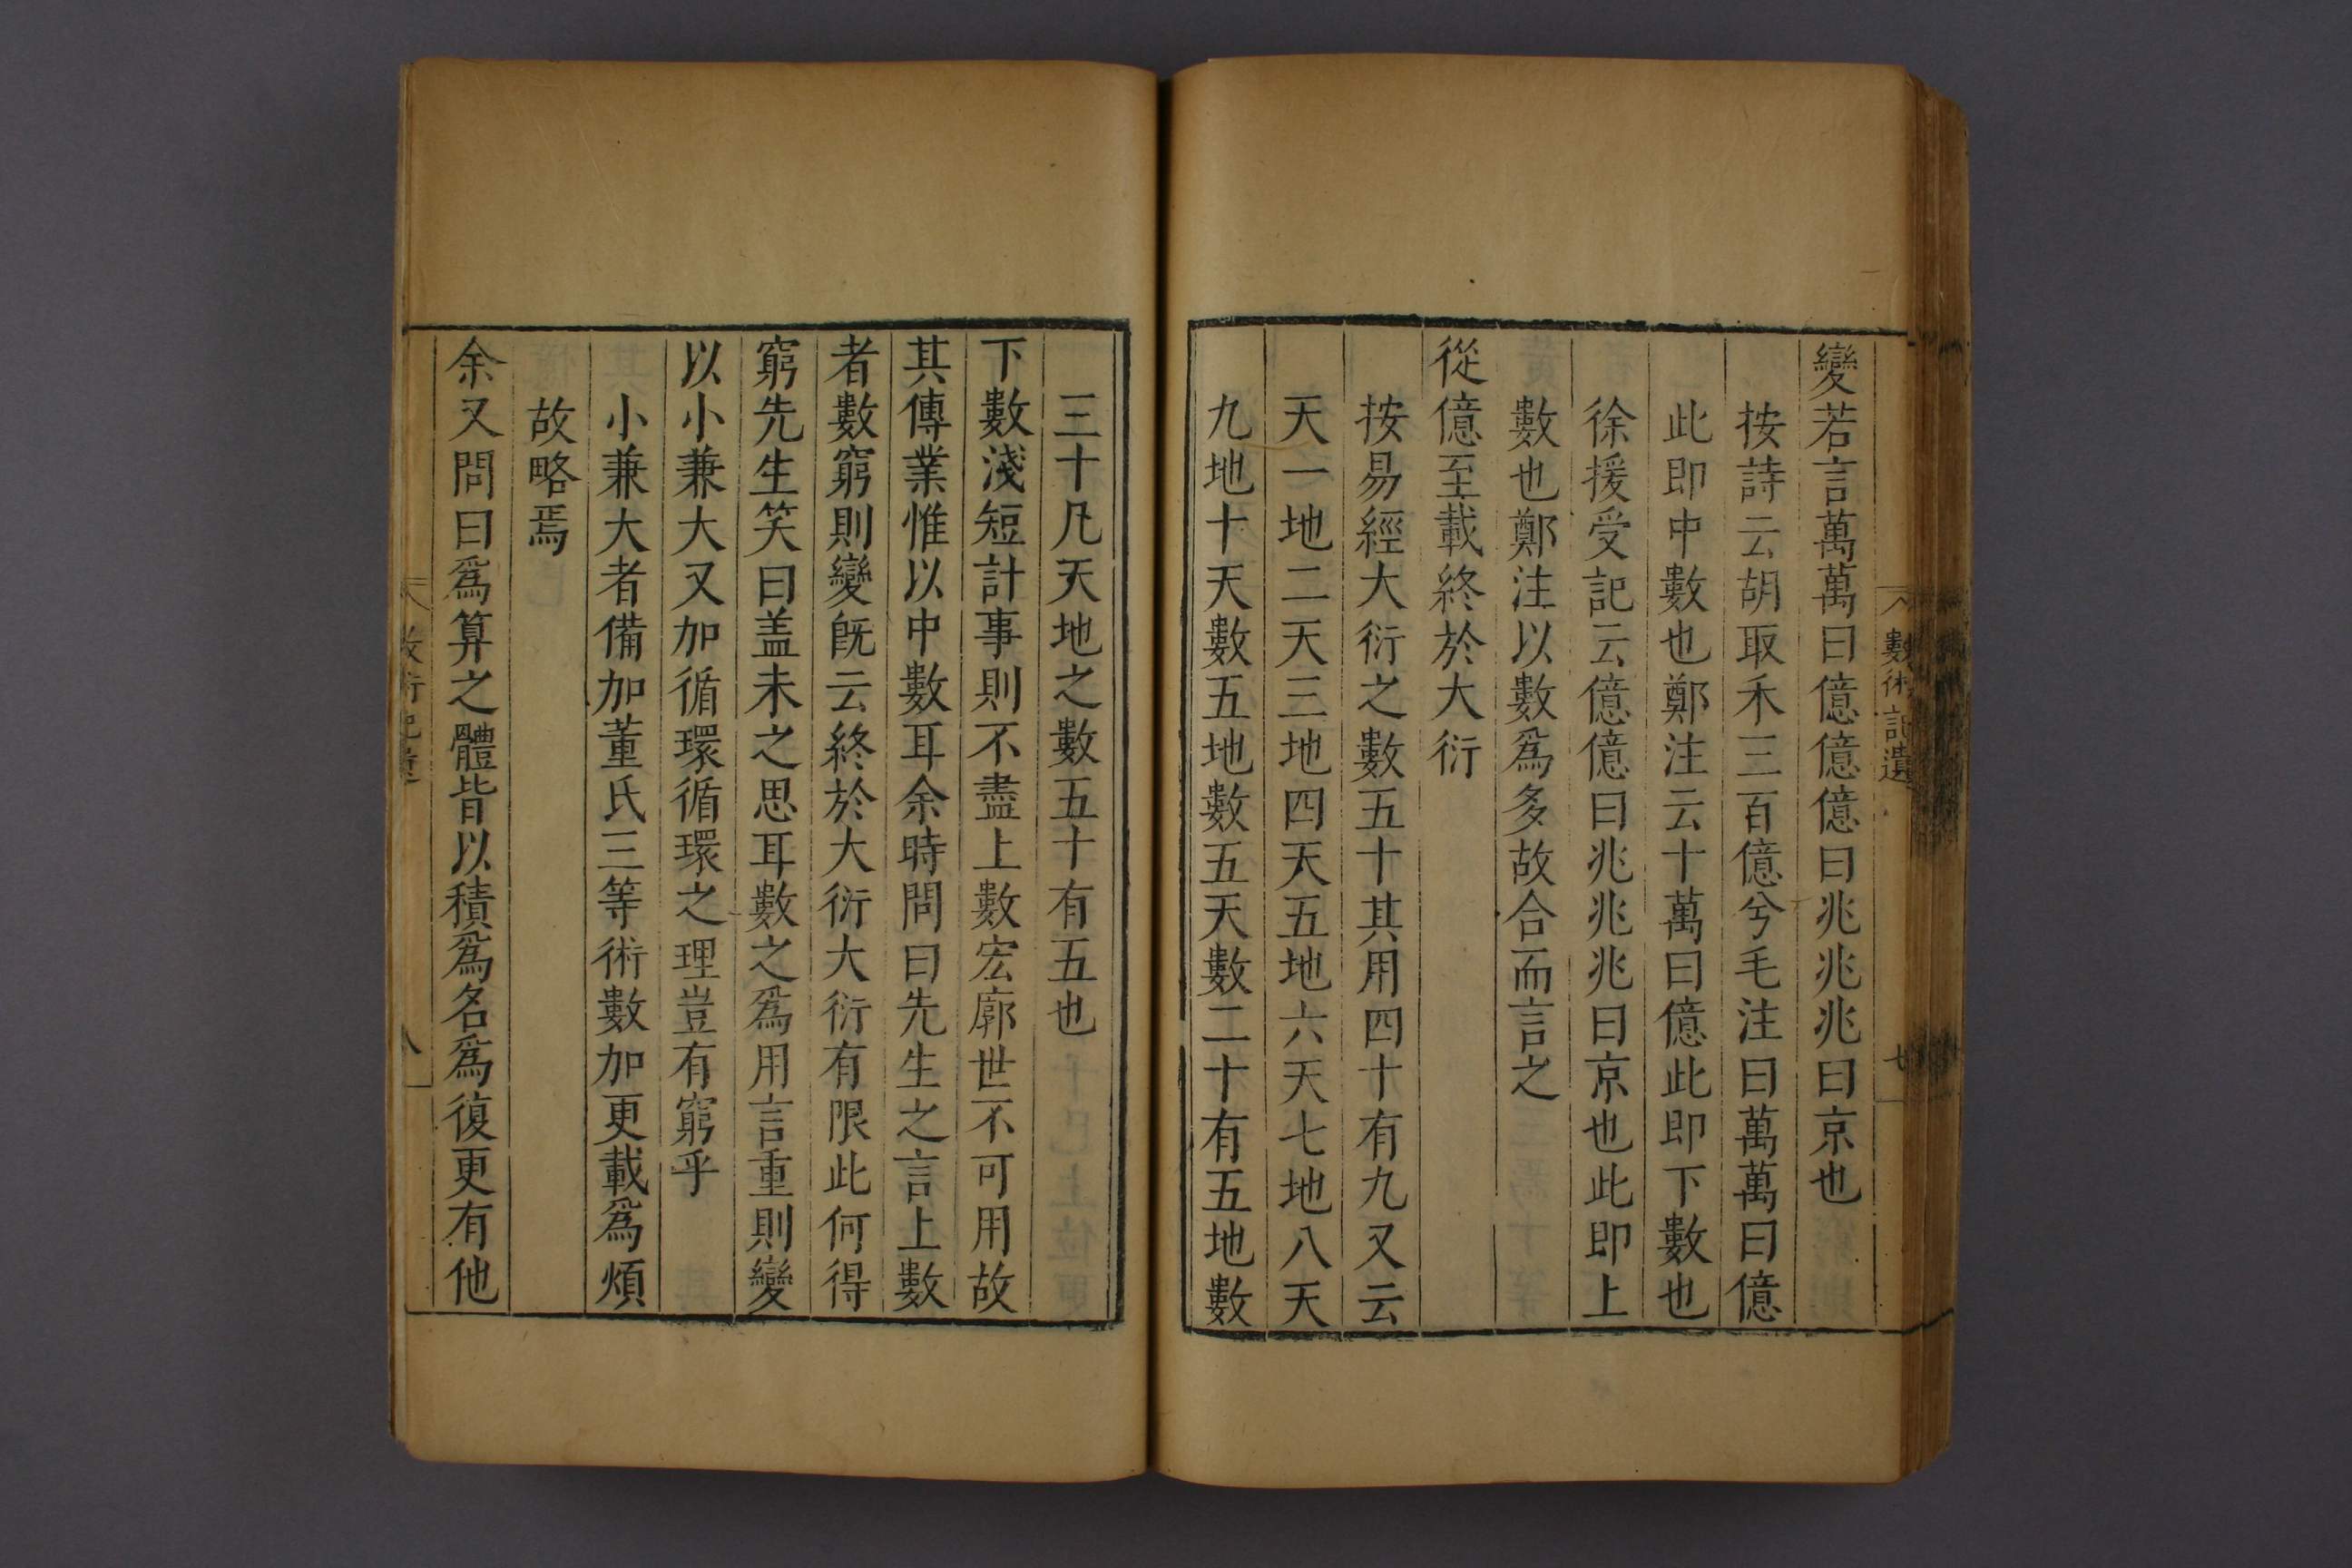 數術記遺
七
變若言萬萬曰億億億曰兆兆兆曰京也
按詩云胡取禾三百億兮毛注曰萬萬曰億
此即中數也鄭注云十萬曰億此即下數也
徐援受記云億億曰兆兆兆曰京也此即上
數也鄭注以數爲多故合而言之
從億至載終於大衍
按易經大衍之數五十其用四十有九又云
天一地二天三地四天五地六天七地八天
九地十天數五地數五天數二十有五地數
三十凡天地之數五十有五也
下數淺短計事則不盡上數宏廓世不可用故
其傳業惟以中數耳余時問曰先生之言上數
者數窮則變既云終於大衍大衍有限此何得
窮先生笑曰盖未之思耳數之爲用言重則變
以小兼大又加循環循環之理豈有窮乎
小兼大者備加董氏三等術數加更載爲煩
故略焉
余又問曰爲算之體皆以積爲名爲復更有他
數術記遺
八